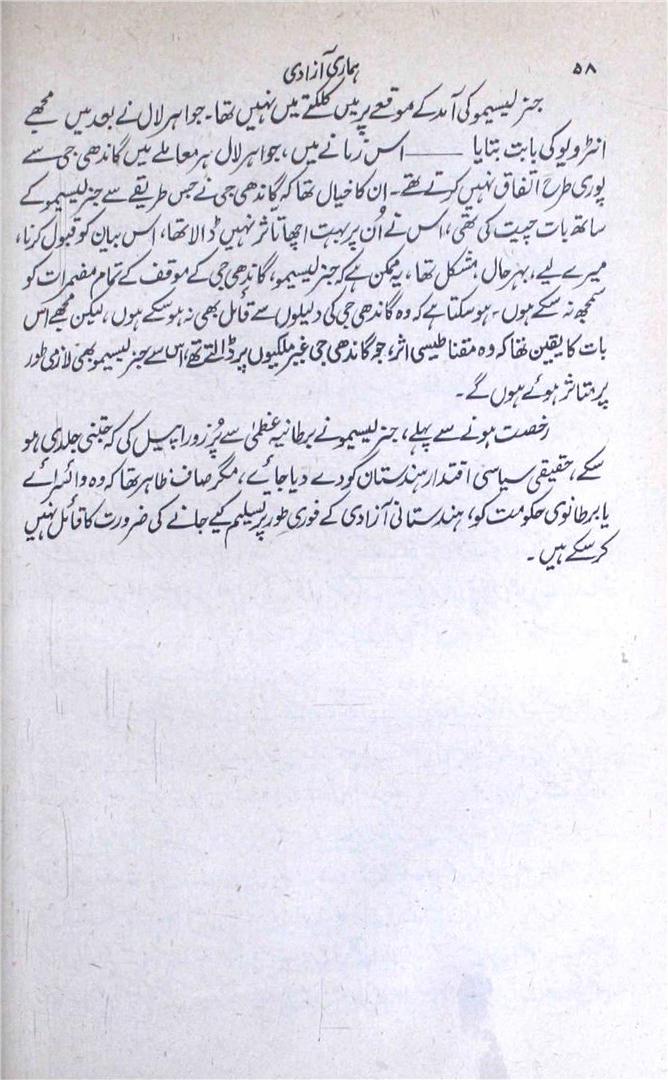 ۵۸
ہماری آزادی
جنرلیسیمو کی آمد کے موقعے پر میں کلکتے میں نہیں تھا۔ جواہر لال نے بعد میں مجھے
انٹرویو کی بابت بتایا ——— اس زمانے میں، جواہر لال ہر معاملے میں گاندھی جی سے
پوری طرح اتفاق نہیں کرتے تھے۔ ان کا خیال تھا کہ گاندھی جی نے جس طریقے سے جنرلیسیمو کے
ساتھ بات چیت کی تھی، اس نے اُن پر بہت اچھا تاثر نہیں ڈالا تھا، اس بیان کو قبول کرنا،
میرے لیے، بہرحال مشکل تھا، یہ ممکن ہے کہ جنرلیسیمو، گاندھی جی کے موقف کے تمام مضمرات کو
سمجھ نہ سکے ہوں۔ ہو سکتا ہے کہ وہ گاندھی جی کی دلیلوں سے قائل بھی نہ ہو سکے ہوں، لیکن مجھے اس
بات کا یقین تھا کہ وہ مقناطیسی اثر، جو گاندھی جی غیر ملکیوں پر ڈالتے تھے، اس سے جنرلیسیمو بھی لازمی طور
پر متاثر ہوئے ہوں گے۔
رخصت ہونے سے پہلے، جنرلیسیمو نے برطانیہ عظمیٰ سے پُرزور اپیل کی کہ جتنی جلدی ہو
سکے، حقیقی سیاسی اقتدار ہندستان کو دے دیا جائے، مگر صاف ظاہر تھا کہ وہ وائسرائے
یا برطانوی حکومت کو، ہندستانی آزادی کے فوری طور پر تسلیم کیے جانے کی ضرورت کا قائل نہیں
کر سکے ہیں۔